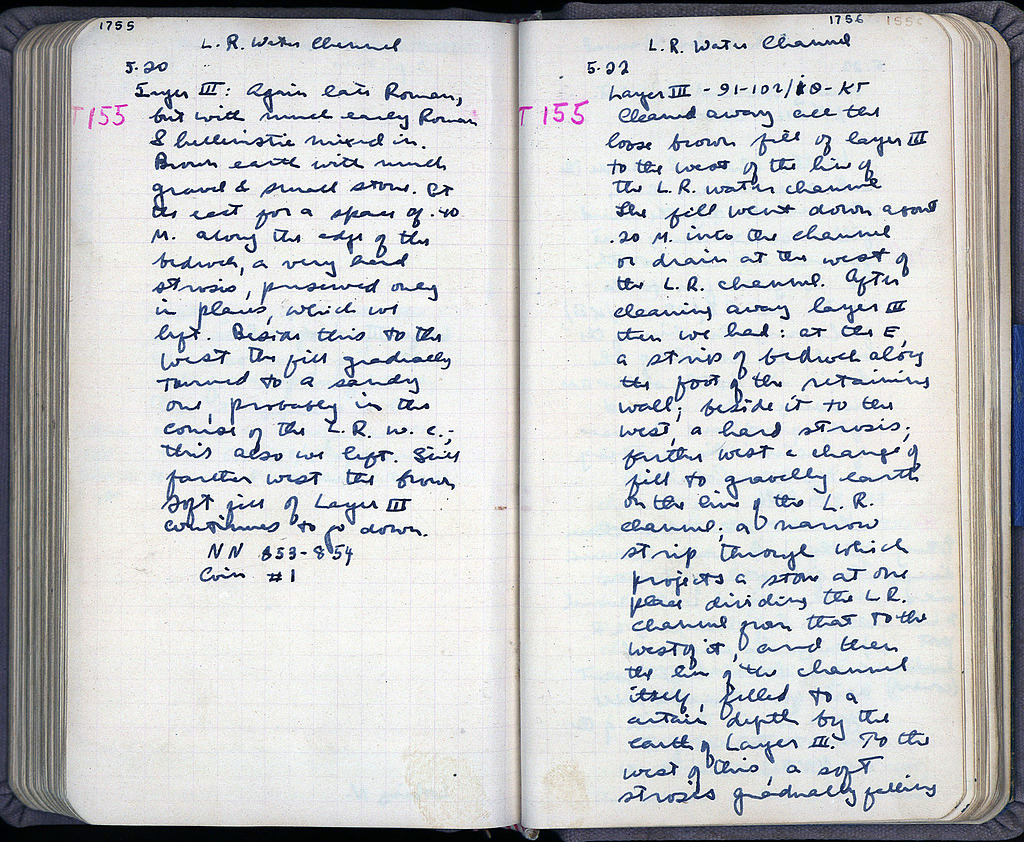 1755
L. R. Water Channel
5.20
Layer III: Again late Roman,
T 155
but with much early Roman
& hellenistic mixed in.
Brown earth with much
gravel & small stone. At
the east for a space of .40
M. along the edge of the
bedrock, a very hard
strosis, preserved only
in places, which we
left. Beside this to the
west the fill gradually
turned to a sandy
one, probably in the
course of the L. R. W. C.;
this also we left. Still
farther west the brown
soft fill of Layer III
continues to go down.
NN 853-854
Coin #1
1756 1556
L. R. Water Channel
5.22
Layer III - 91-102/ - KT
T 155
Cleaned away all the
loose brown fill of layer III
to the west of the line of
the L. R. water channel
The fill went down about
.20 M. into the channel
or drain at the west of
the L. R. channel. After
cleaning away layer III
then we had: at the E,
a strip of bedrock along
the foot of the retaining
wall; beside it to the
west, a hard strosis;
farther west a change of
fill to gravelly earth
on the line of the L. R.
channel; a narrow
strip through which
projects a stone at one
place dividing the L. R.
channel from that to the
west of it, and then
the line of the channel
itself, filled to a
certain depth by the
earth of Layer III. To the
west of this, a soft
strosis gradually falling